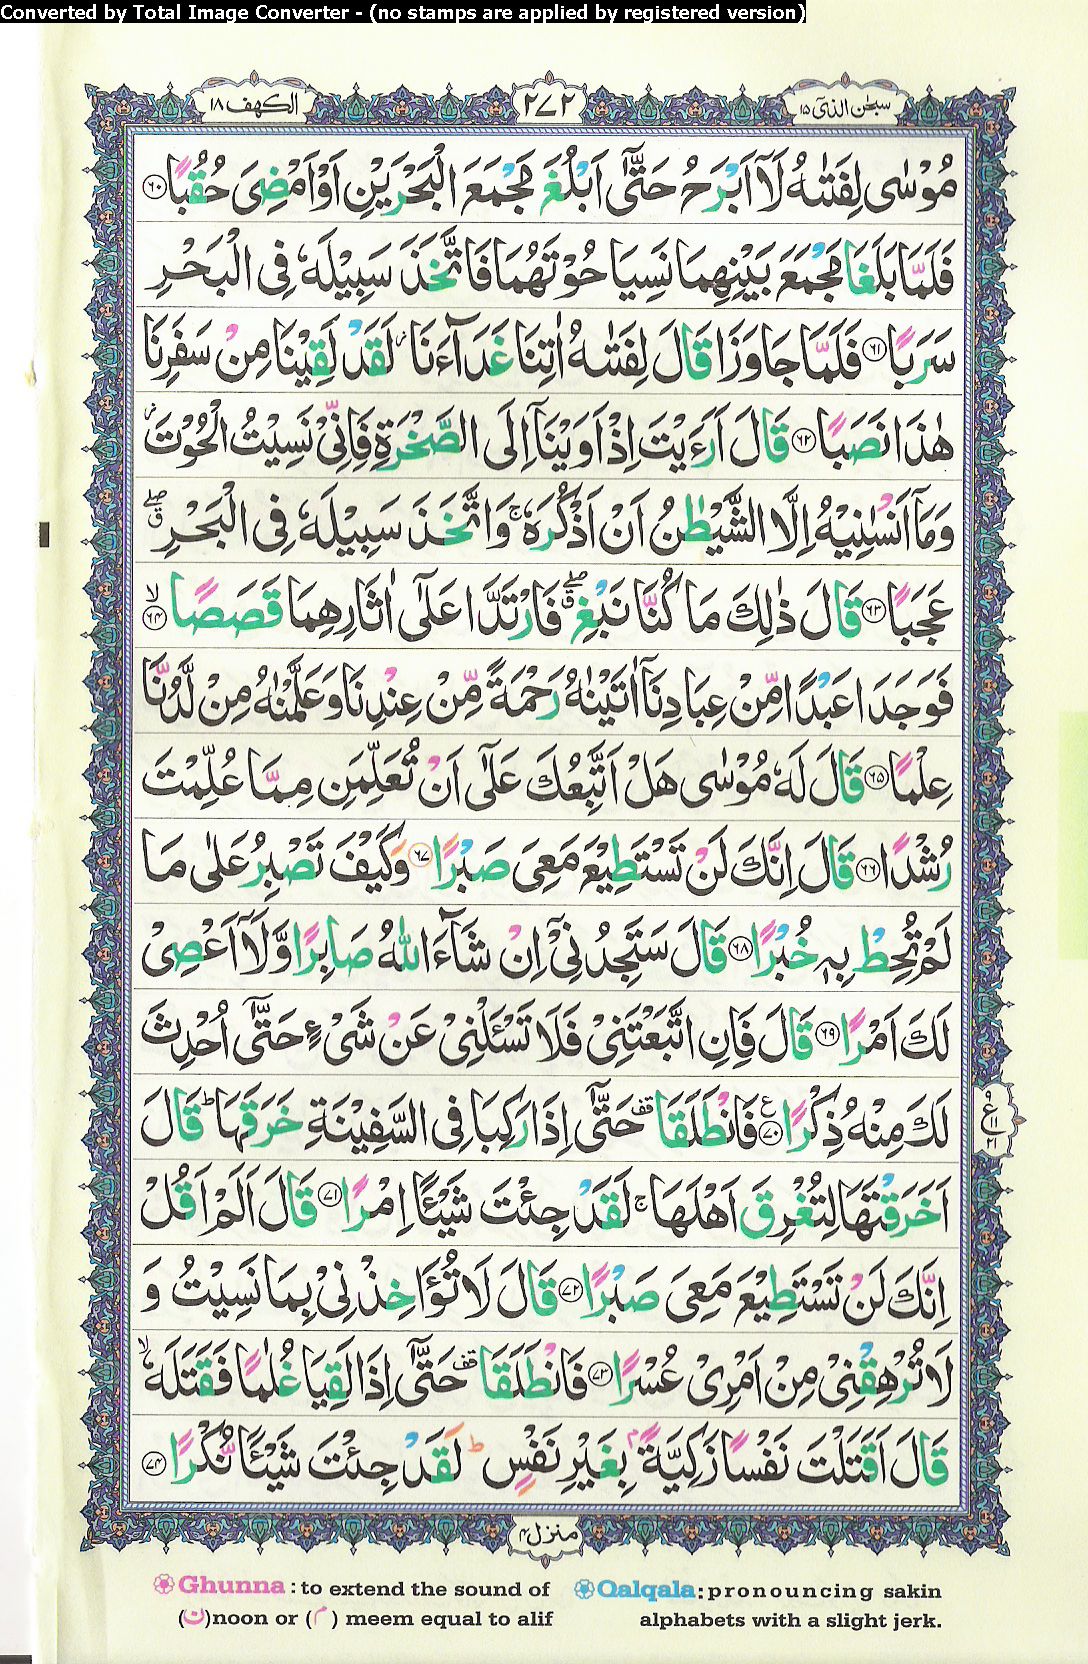 Converted by Total Image Converter - (no stamps are applied by registered version)
سبحٰن الذیٓ ١٥
٢٧٢
الكهف ١٨
مُوْسٰى لِفَتٰىهُ لَآ اَبْرَحُ حَتّٰۤى اَبْلُغَ مَجْمَعَ الْبَحْرَيْنِ اَوْ اَمْضِىَ حُقُبًا ﴿٦٠﴾
فَلَمَّا بَلَغَا مَجْمَعَ بَيْنِهِمَا نَسِيَا حُوْتَهُمَا فَاتَّخَذَ سَبِيْلَهٗ فِى الْبَحْرِ
سَرَبًا ﴿٦١﴾ فَلَمَّا جَاوَزَا قَالَ لِفَتٰىهُ اٰتِنَا غَدَآءَنَا ز لَقَدْ لَقِيْنَا مِنْ سَفَرِنَا
هٰذَا نَصَبًا ﴿٦٢﴾ قَالَ اَرَءَيْتَ اِذْ اَوَيْنَآ اِلَى الصَّخْرَةِ فَاِنِّىْ نَسِيْتُ الْحُوْتَ ز
وَمَآ اَنْسٰىنِيْهُ اِلَّا الشَّيْطٰنُ اَنْ اَذْكُرَهٗ ج وَاتَّخَذَ سَبِيْلَهٗ فِى الْبَحْرِ صلے ق
عَجَبًا ﴿٦٣﴾ قَالَ ذٰلِكَ مَا كُنَّا نَبْغِ صلے ق فَارْتَدَّا عَلٰٓى اٰثَارِهِمَا قَصَصًا لا ﴿٦٤﴾
فَوَجَدَا عَبْدًا مِّنْ عِبَادِنَآ اٰتَيْنٰهُ رَحْمَةً مِّنْ عِنْدِنَا وَعَلَّمْنٰهُ مِنْ لَّدُنَّا
عِلْمًا ﴿٦٥﴾ قَالَ لَهٗ مُوْسٰى هَلْ اَتَّبِعُكَ عَلٰٓى اَنْ تُعَلِّمَنِ مِمَّا عُلِّمْتَ
رُشْدًا ﴿٦٦﴾ قَالَ اِنَّكَ لَنْ تَسْتَطِيْعَ مَعِىَ صَبْرًا ﴿٦٧﴾ وَكَيْفَ تَصْبِرُ عَلٰى مَا
لَمْ تُحِطْ بِهٖ خُبْرًا ﴿٦٨﴾ قَالَ سَتَجِدُنِىْٓ اِنْ شَآءَ اللّٰهُ صَابِرًا وَّلَآ اَعْصِىْ
لَكَ اَمْرًا ﴿٦٩﴾ قَالَ فَاِنِ اتَّبَعْتَنِىْ فَلَا تَسْـَٔلْنِىْ عَنْ شَىْءٍ حَتّٰۤى اُحْدِثَ
لَكَ مِنْهُ ذِكْرًا ع ﴿٧٠﴾ فَانْطَلَقَا قف حَتّٰۤى اِذَا رَكِبَا فِى السَّفِيْنَةِ خَرَقَهَا ط قَالَ
٩ ع ١١ ٢١
اَخَرَقْتَهَا لِتُغْرِقَ اَهْلَهَا ج لَقَدْ جِئْتَ شَيْـًٔا اِمْرًا ﴿٧١﴾ قَالَ اَلَمْ اَقُلْ
اِنَّكَ لَنْ تَسْتَطِيْعَ مَعِىَ صَبْرًا ﴿٧٢﴾ قَالَ لَا تُؤَاخِذْنِىْ بِمَا نَسِيْتُ وَ
لَا تُرْهِقْنِىْ مِنْ اَمْرِىْ عُسْرًا ﴿٧٣﴾ فَانْطَلَقَا قف حَتّٰۤى اِذَا لَقِيَا غُلٰمًا فَقَتَلَهٗ لا
قَالَ اَقَتَلْتَ نَفْسًا زَكِيَّةً م بِغَيْرِ نَفْسٍ ط لَقَدْ جِئْتَ شَيْـًٔا نُّكْرًا ﴿٧٤﴾
منزل ٤
Ghunna : to extend the sound of (ن)noon or (م) meem equal to alif
Qalqala: pronouncing sakin alphabets with a slight jerk.